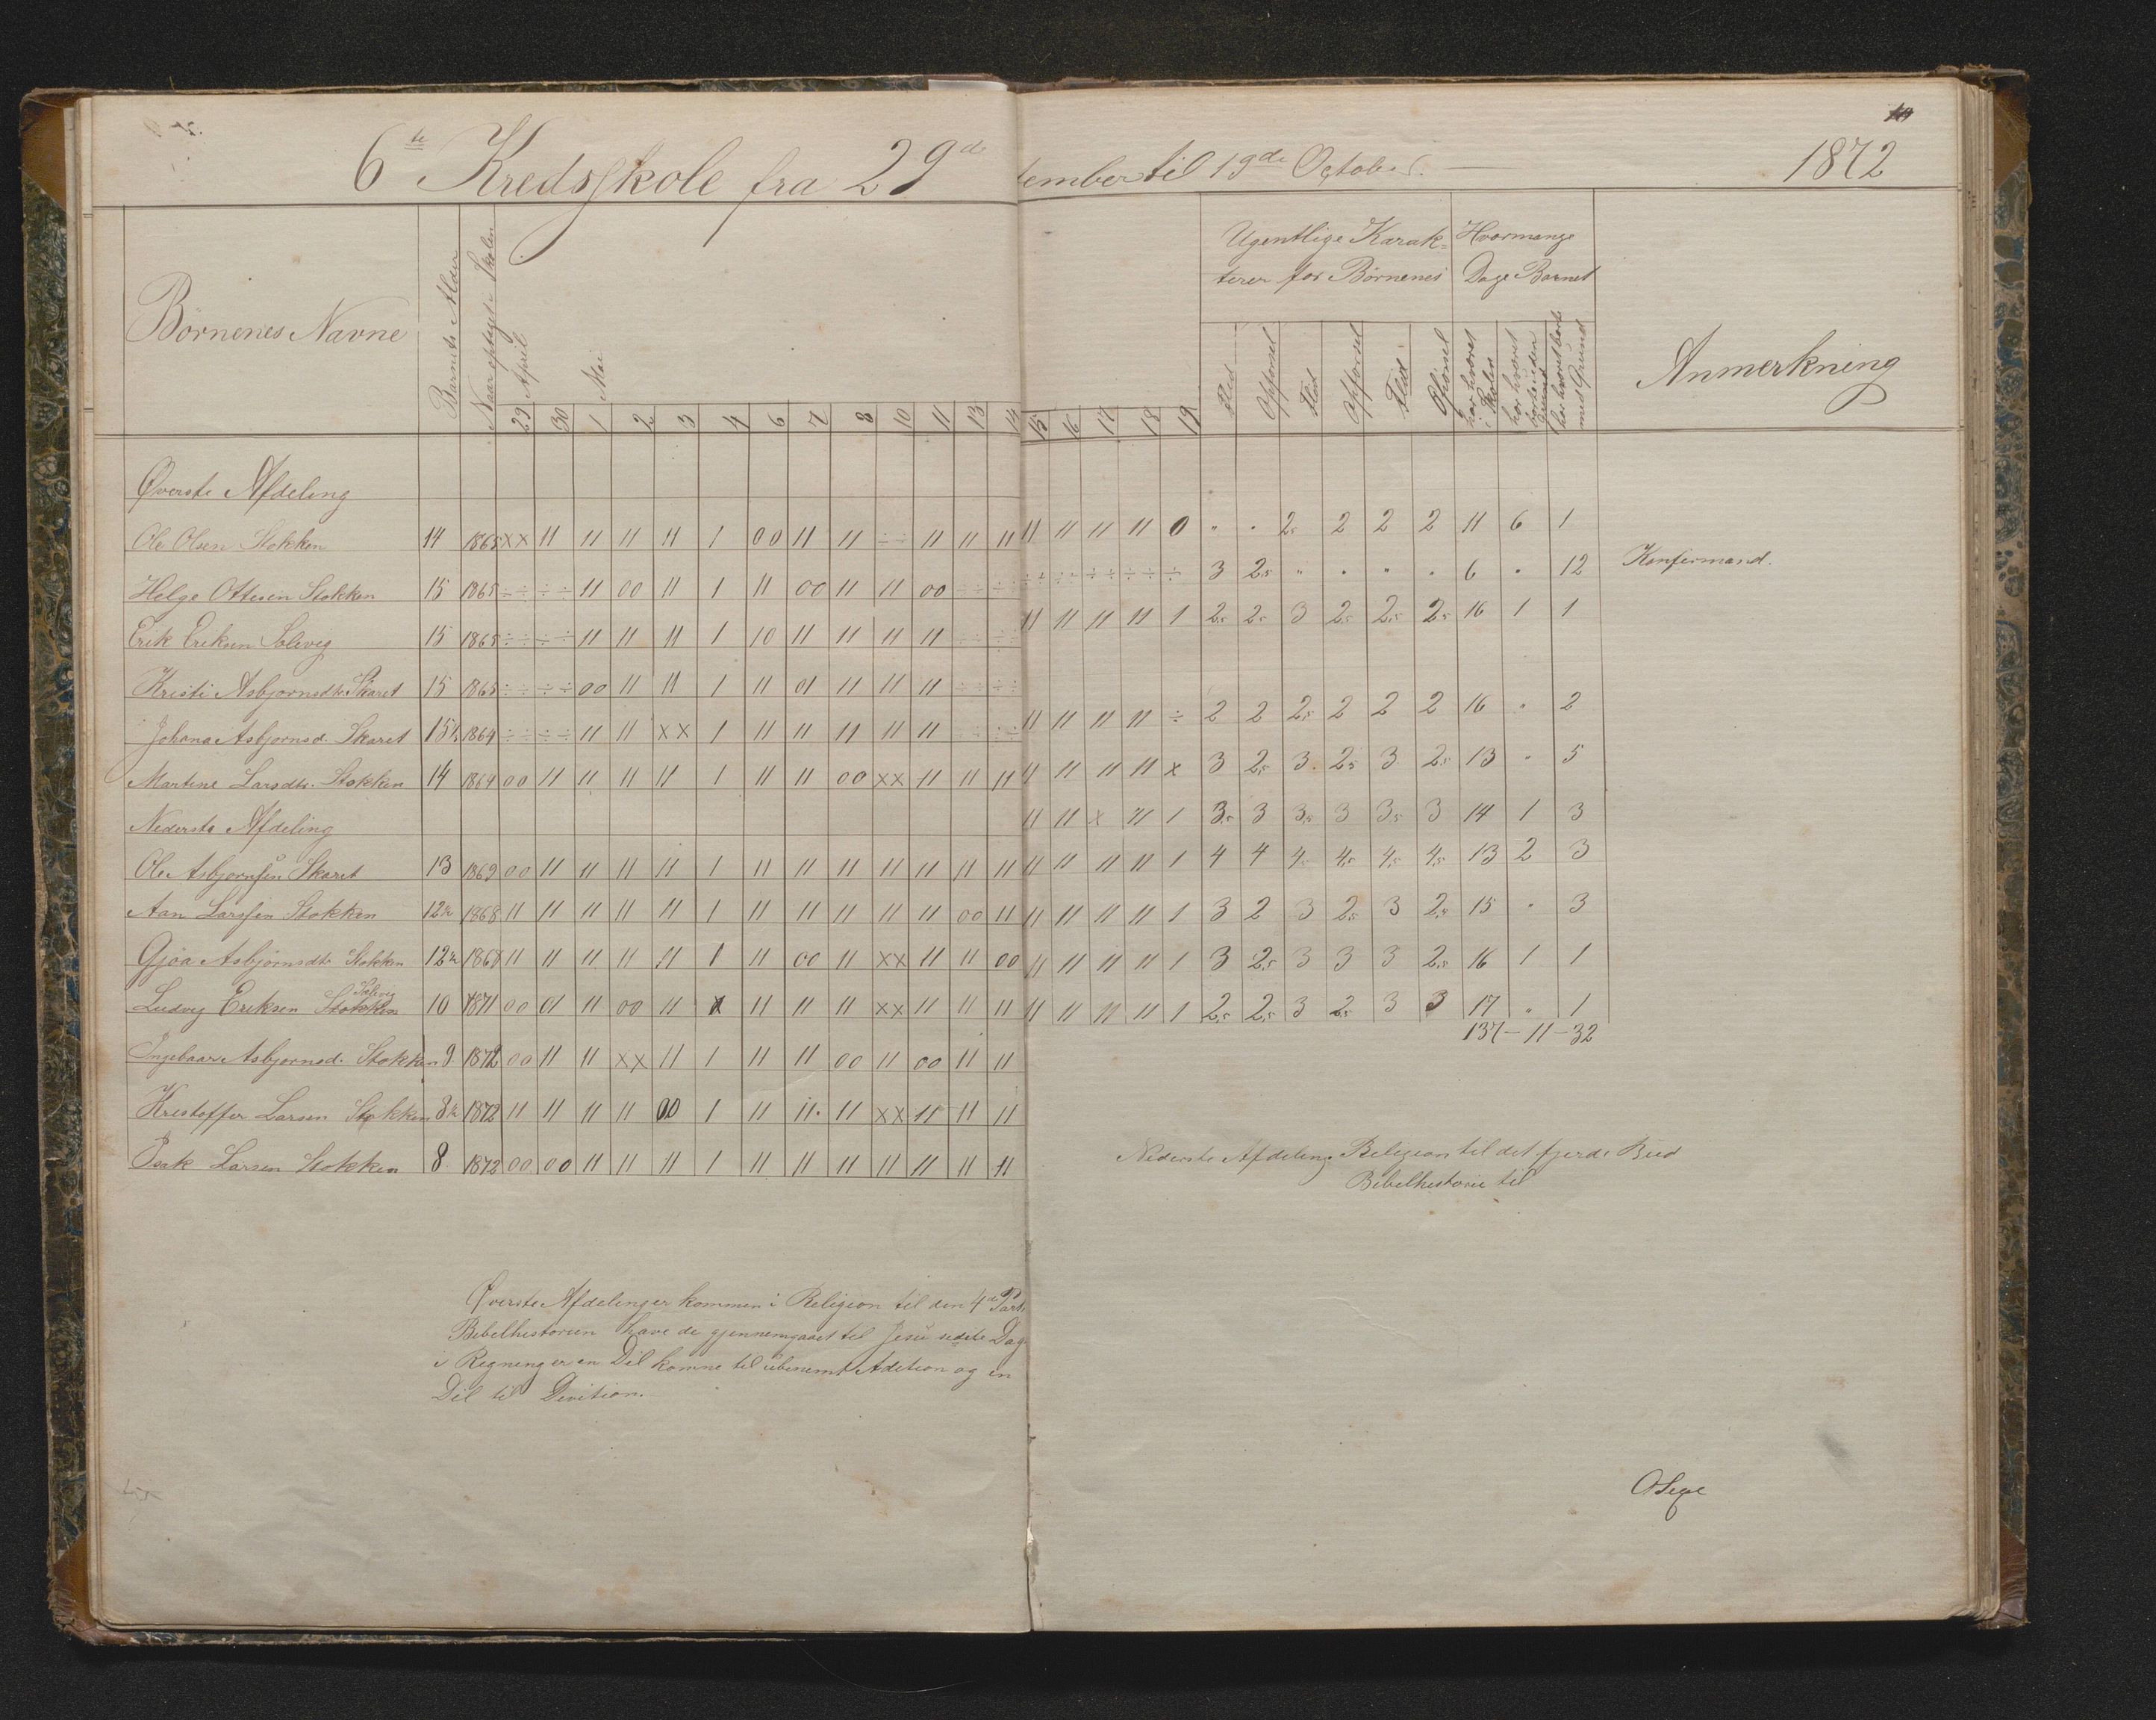 6te Kredsskole fra 29de
Børnenes Navne
Barnets Alder
Naar optaget i Skolen
April
Mai
29 30 1 2 3 4 6 7 8 10 11 13 14
Øverste Afdeling
Ole Olsen Stokken 14 1865 xx 11 11 11 11 1 00 11 11 ÷÷ 11 11 11
Helge Ottesen Stokken 15 1865 ÷÷ ÷÷ 11 00 11 1 11 00 11 11 00 ÷÷ ÷÷
Erik Eriksen Solevig 15 1865 ÷÷ ÷÷ 11 11 11 1 10 11 11 11 11 ÷÷ ÷÷
Kristi Asbjørnsdtr. Skaret 15 1865 ÷÷ ÷÷ 00 11 11 1 11 01 11 11 11 ÷÷ ÷÷
Johana Asbjornsd. Skaret 15½ 1864 ÷÷ ÷÷ 11 11 xx 1 11 11 11 11 11 ÷÷ ÷÷
Martine Larsdtr. Stokken 14 1864 00 11 11 11 11 1 11 11 00 xx 11 11 11
Nederste Afdeling
Ole Asbjornsen Skaret 13 1869 00 11 11 11 11 1 11 11 11 11 11 11 11
Aan Larssen Stokken 12½ 1868 11 11 11 11 11 1 11 11 11 11 11 00 11
Gjøa Asbjørnsdtr Stokken 12½ 1868 11 11 11 11 11 1 11 00 11 xx 11 11 00
Solevig
Ludvig Eriksen Stokken 10 1871 00 01 11 00 11 x 11 11 11 xx 11 11 11
Ingebaar Asbjornsd. Stokken 9 1872 00 11 11 xx 11 1 11 11 00 11 00 11 11
Kristoffer Larsen Stokken 8½ 1872 11 11 11 11 00 1 11 11. 11 xx 11 11 11
Isak Larsen Stokken 8 1872 00 00 11 11 11 1 11 11 11 11 11 11 11
Øverste Afdeling er kommen i Religion til den 4de Part.
Bibelhistorien have de gjennemgaaet til Jesu sidste Dag
i Regning er en Del komne til ubenemt Adition og en
Del til Divition.
10
tember til 19de October.
1872
Ugentlige Karak-
terer for Børnenes
Hvormange
Dage Barnet
Anmerkning
15 16 17 18 19
Flid Opførsel Flid Opførsel Flid Opførsel
har hværet i Skolen
har hværet borte uden Grund
har hværet borte med Grund
11 11 11 11 0 " " 2,5 2 2 2 11 6 1
÷÷ ÷÷ ÷÷ ÷÷ ÷ 3 2,5 " " " " 6 " 12 Konfirmand.
11 11 11 11 1 2,5 2,5 3 2,5 2,5 2,5 16 1 1
11 11 11 11 ÷ 2 2 2,5 2 2 2 16 " 2
11 11 11 11 x 3 2,5 3 2,5 3 2,5 13 " 5
11 11 x 11 1 3,5 3 3,5 3 3,5 3 14 1 3
11 11 11 11 1 4 4 4,5 4,5 4,5 4,5 13 2 3
11 11 11 11 1 3 2 3 2,5 3 2,5 15 " 3
11 11 11 11 1 3 2,5 3 3 3 2,5 16 1 1
11 11 11 11 1 2,5 2,5 3 2,5 3 3 17 " 1
137 - 11 - 32
Nederste Afdeling Religion til det fjerde Bud
Bibelhistorie til